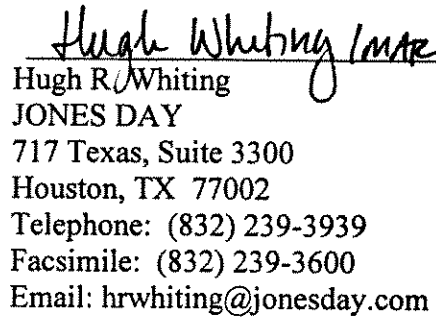 Hugh Whiting /MAR
Hugh R. Whiting
JONES DAY
717 Texas, Suite 3300
Houston, TX 77002
Telephone: (832) 239-3939
Facsimile: (832) 239-3600
Email: hrwhiting@jonesday.com